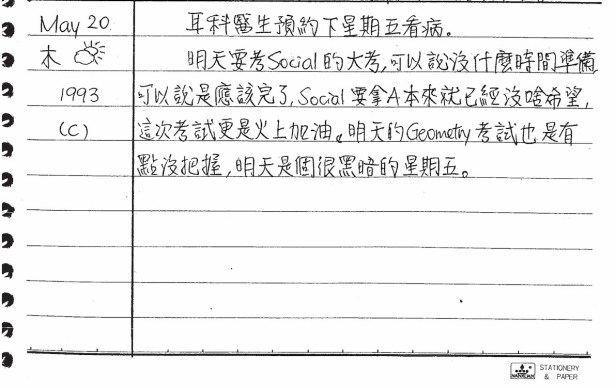 May 20
木
1993
(C)
耳科醫生預約下星期五看病。
明天要考Social的大考,可以說沒什麼時間準備
可以說是應該完了,Social要拿A本來就已經沒啥希望,
這次考試更是火上加油。明天的Geometry考試也是有
點沒把握,明天是個很黑暗的星期五。
STATIONERY
& PAPER